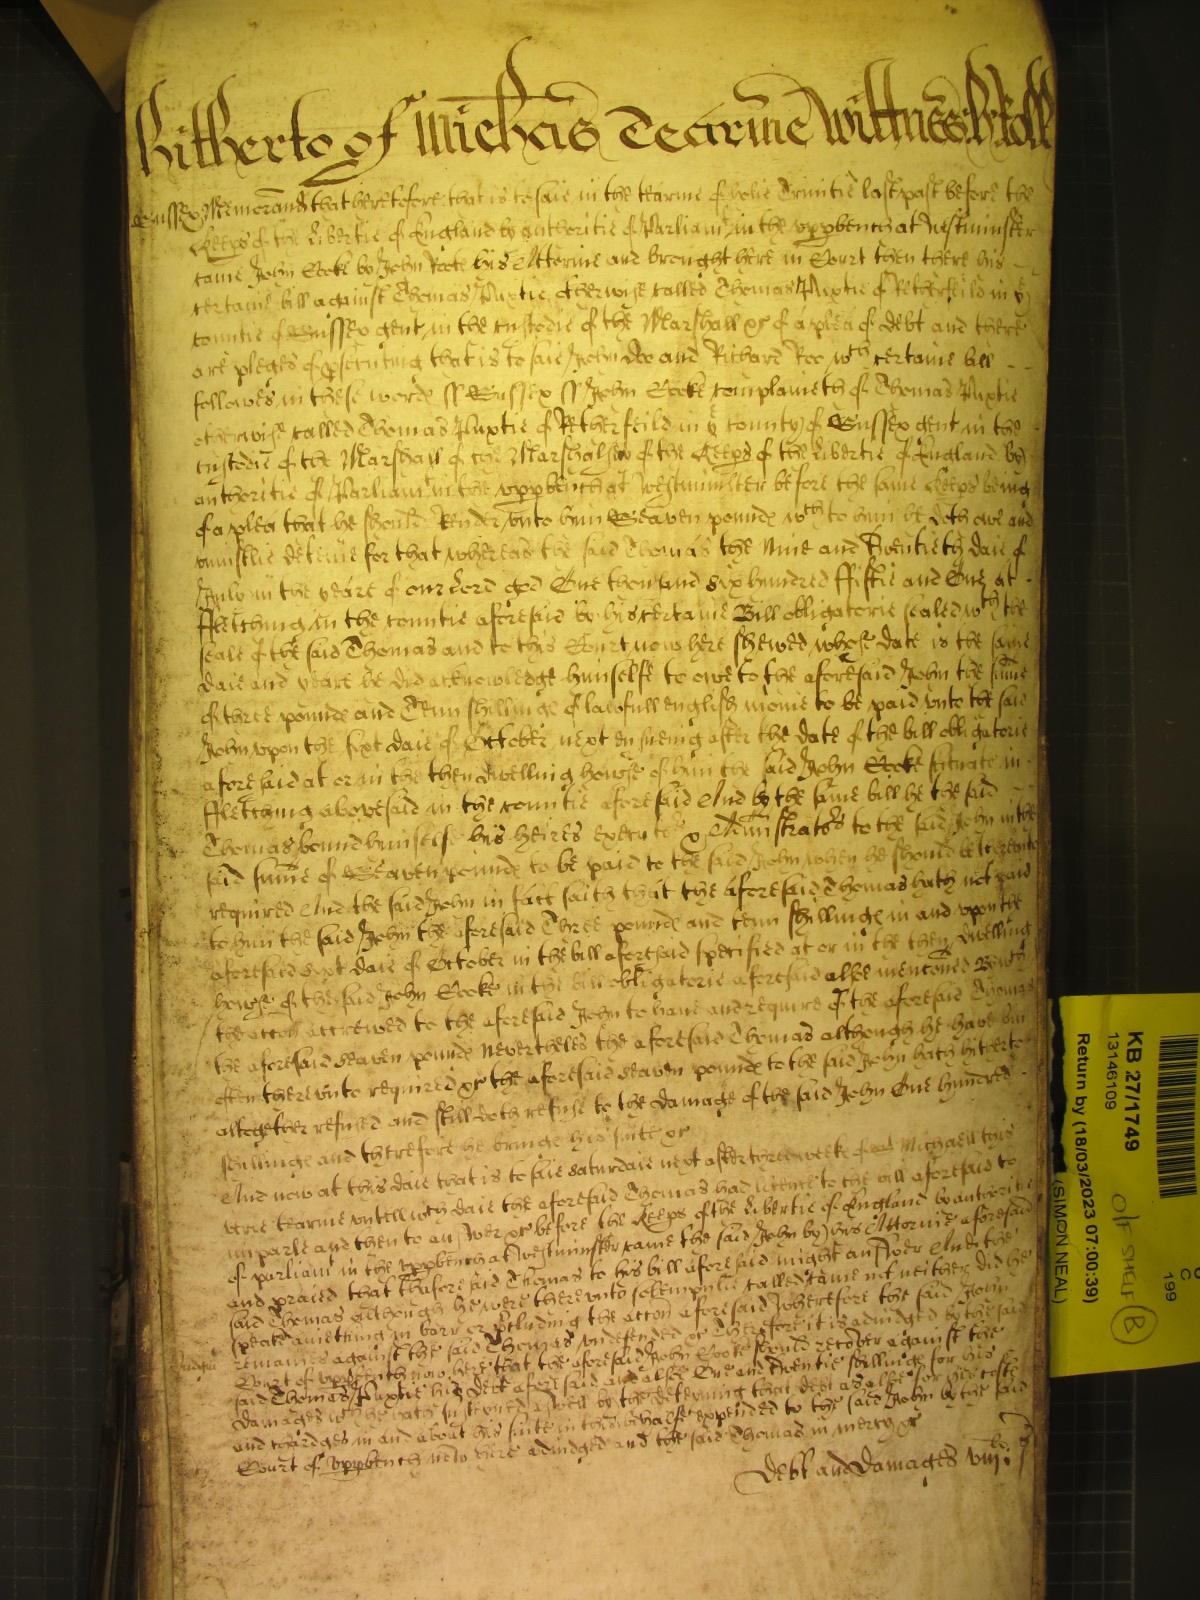 hitherto of Michas Tearme Wittnes H Rolle
Sussex Memorand that heretofore that is to saie in the tearme of holie Trinitie last past before the
Keeps of the libertie of England by authoritie of Parliam in the uppbench at Westminster
came John Cooke by John his Attornie and brought here in Court then there his
certaine bill against Thomas Puxtie otherwise called Thomas Puxtie of Retherfeild in ye
countie of Sussex gent in the custodie of the Marshall &c of a plea of debt and there
are pleges of psecuting that is to saie John Doo and Richard Roo wch certaine bill
followes in these words ss Sussex ss John Cooke complaineth of Thomas Puxtie
otherwise called Thomas Puxtie of Retherfeild in ye county of Sussex gent in the
custodie of the Marshall of the Marshalsey of the Keeps of the libertie of England by
authoritie of Parliam in the uppbench at Westminster before the same Keeps being
of a plea that he should Render unto him Seaven pounds wch to him he doth owe and
uniustlie deteine for that whereas the said Thomas the Nine and Twentieth daie of
July in the yeare of our Lord god One thousand six hundred ffiftie and One at
ffletching in the countie aforesaid by his certaine Bill obligatorie sealed wth the
seale of the said Thomas and to this Court now here shewed whose date is the same
daie and yeare he did acknowledge himselfe to owe to the aforesaid John the sume
of three pounds and Tenn shillings of lawfull english monie to be paid unto the said
John upon the sixt daie of October next ensueing after the date of the bill obligatorie
aforesaid at or in the then dwelling howse of him the said John Cooke scituate in
ffletching abovesaid in the countie aforesaid And by the same bill he the said
Thomas bound himselfe his heires executors & Administrators to the said John in the
said sume of Seaven pounds to be paid to the said John when he should be thereunto
required And the said John in fact saith that the aforesaid Thomas hath not paid
to him the said John the aforesaid Three pounds and tenn shillings in and upon the
aforesaid sixt daie of October in the bill aforesaid specified at or in the then dwelling
howse of the said John Cooke in the bill obligatorie aforesaid alsoe mentoned
the accon accrewed to the aforesaid John to have and require of the aforesaid Thomas
the aforesaid seaven pounds Nevertheles the aforesaid Thomas although he have bin
often thereunto required &c the aforesaid seaven pounds to the said John hath hitherto
altogether refused and still doth refuse to the damage of the said John One hundred
shillings and therefore he brings his suite &c
And now at this daie that is to saie saturdaie next after three weeks of Michaell this
verie tearme untill wch daie the aforesaid Thomas had licence to the bill aforesaid to
imparle and then to answer &c before the Keeps of the libertie of England by authoritie
of parliam in the uppbench at Westminster came the said John by his Attornie aforesaid
and praied that thaforesaid Thomas to his bill aforesaid might answer And the
said Thomas Although he were thereunto solempnlie called came not neither did he
speake aniething in barr or pcluding the accon aforesaid Wherefore the said John
remaines against the said Thomas undefended &c Therefore it is adiudged by the said
Judgmt Court of uppbench now here that the aforesaid John Cooke should recover against the
said Thomas Puxtie his debt aforesaid and alsoe One and Twentie shillings for his
damages wch he hath susteyned aswell by the deteyning that debt as alsoe for his costs
and chardges in and about his suite in this behalfe expended to the said John by the said
Court of uppbench now here adiudged and the said Thomas in mercy &c
Debt and damages viijli
KB 27/1749
13146109
Return by (18/03/2023 07:00:39)
(SIMON NEAL)
O/F SHELF (B)
C
199